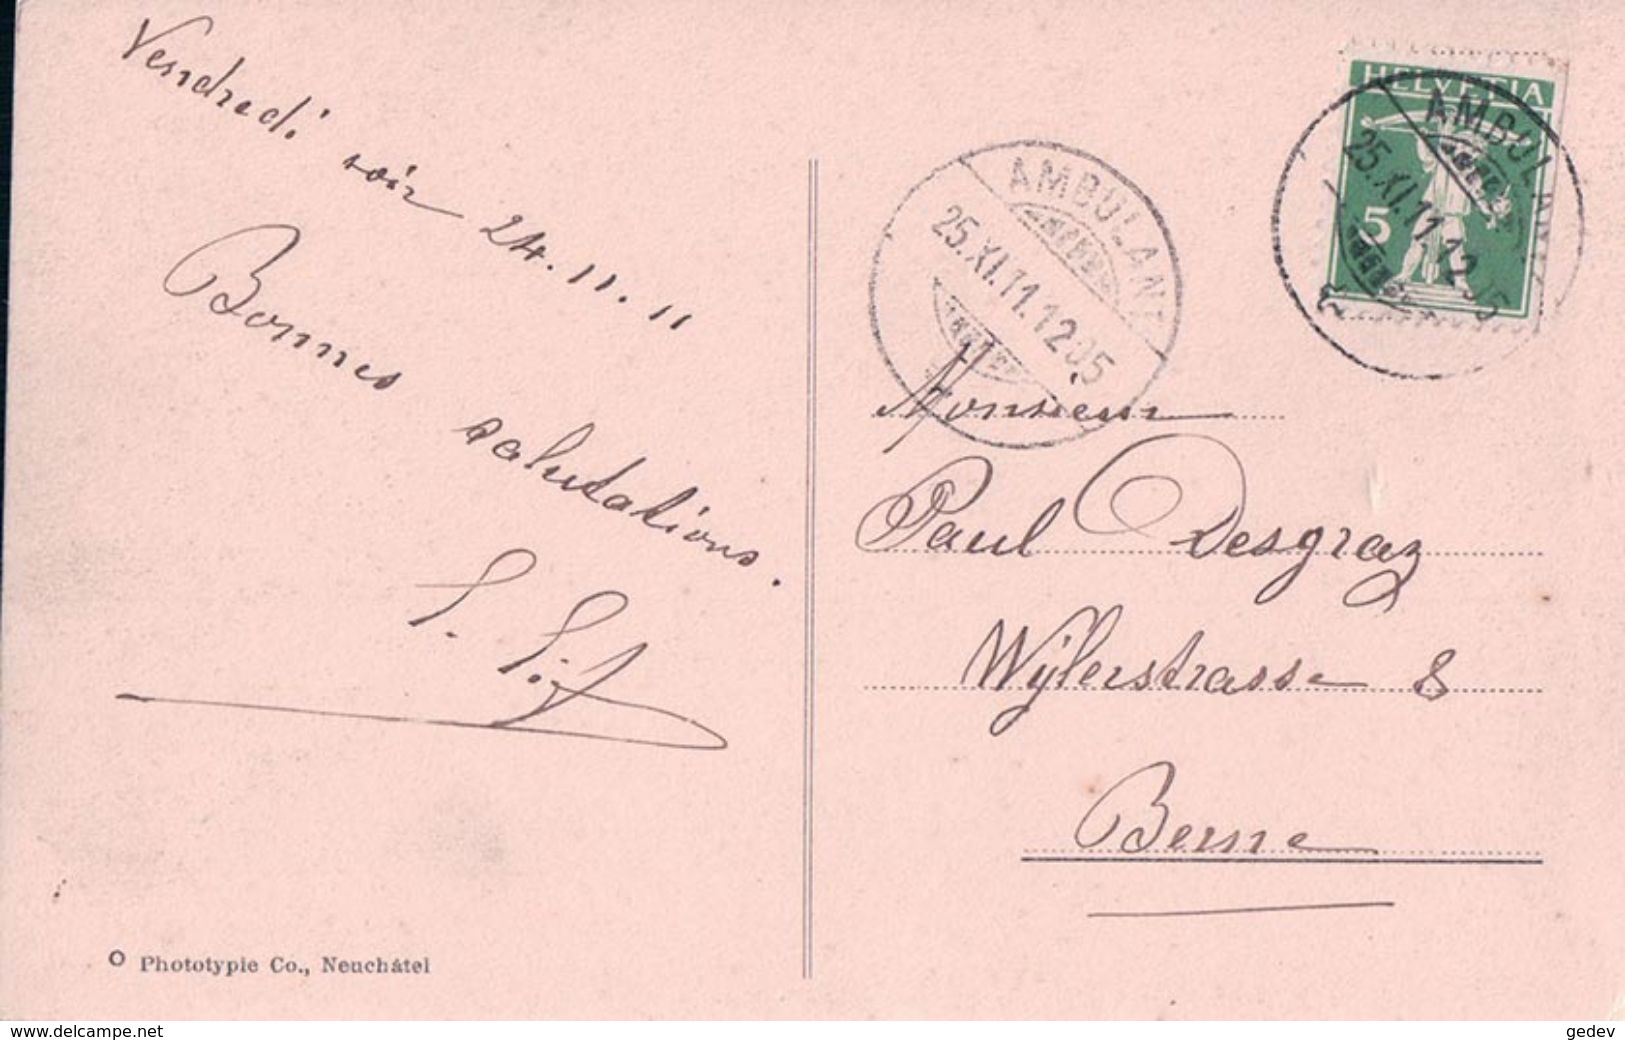 Vendredi soir 24.11.11
Bonnes salutations.
HELVETIA
5
AMBULANT
25.XI.11.12
AMBULANT
25.XI.11.12
Monsieur
Paul Desgraz
Wylerstrasse 8
Berne
Phototypie Co., Neuchâtel
www.delcampe.net
gedev